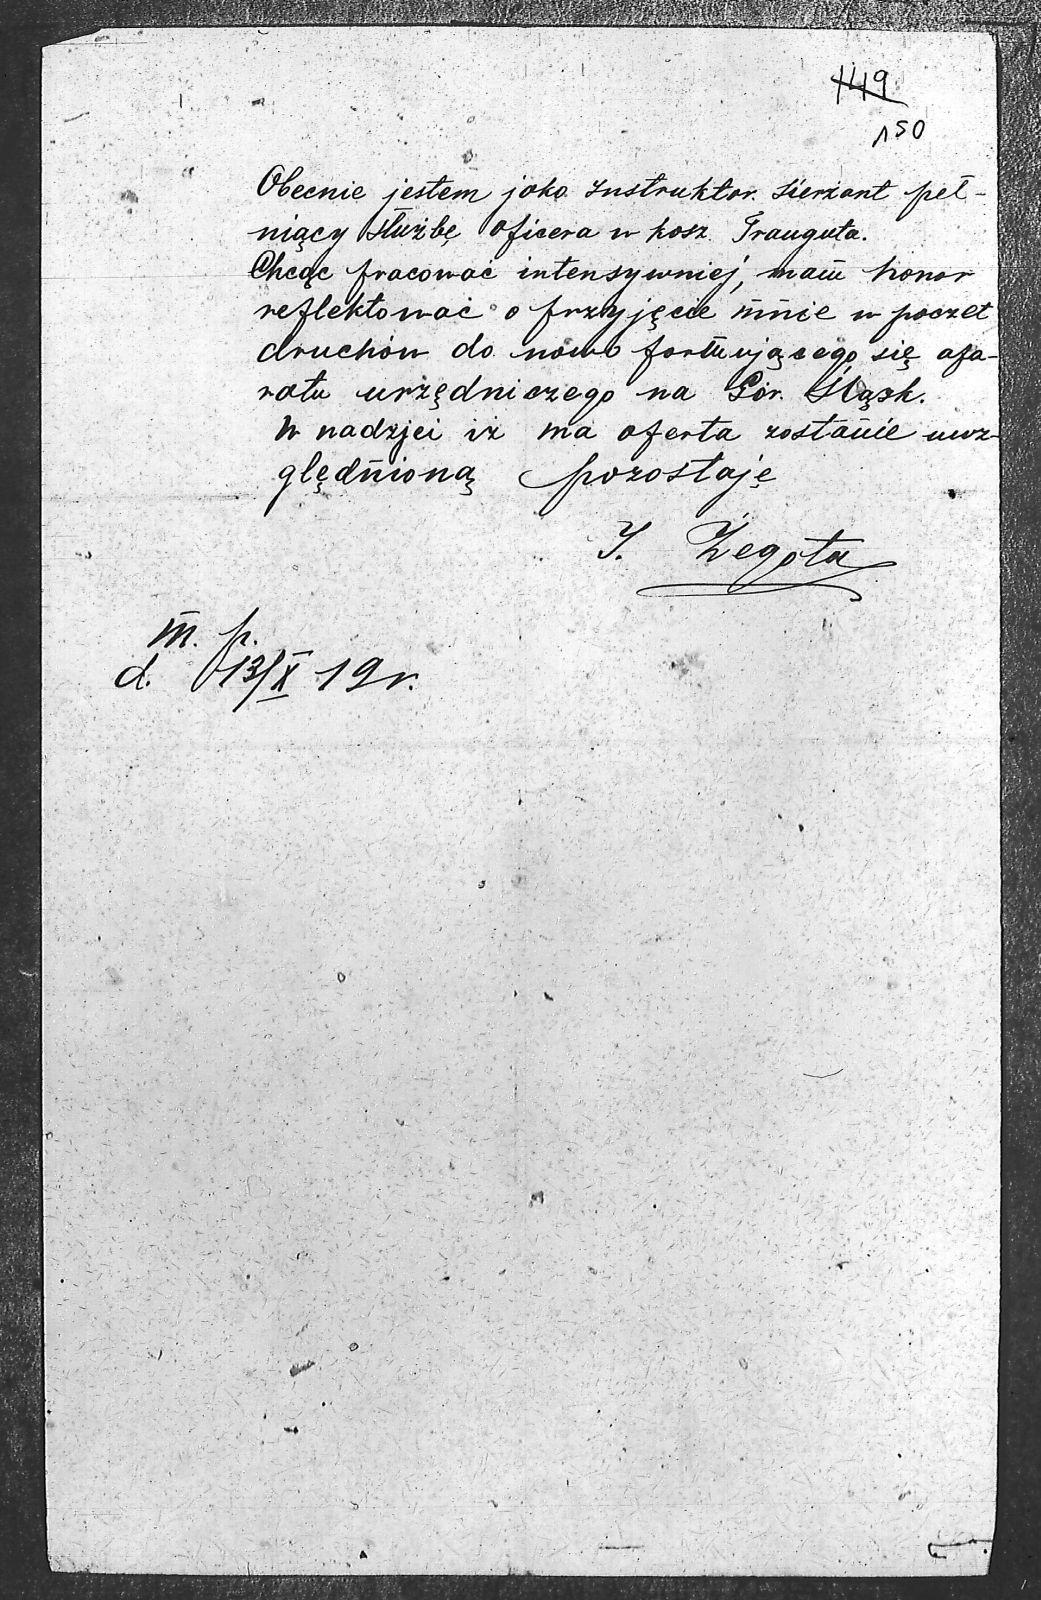 149
150
Obecnie jestem jako Instruktor. sierżant peł-
niący służbę oficera w kosz. Trauguta.
Chcąc pracować intensywniej, mam honor
reflektować o przyjęcie mnie w poczet
druchów do nowo formującego się apa-
ratu urzędniczego na Gór. Śląsk.
W nadzjei iż ma oferta zostanie uwz-
ględnioną pozostaję
J. Żegota
m. p.
d. 13/X 19 r.